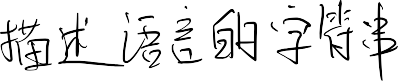 描述语言的字符串